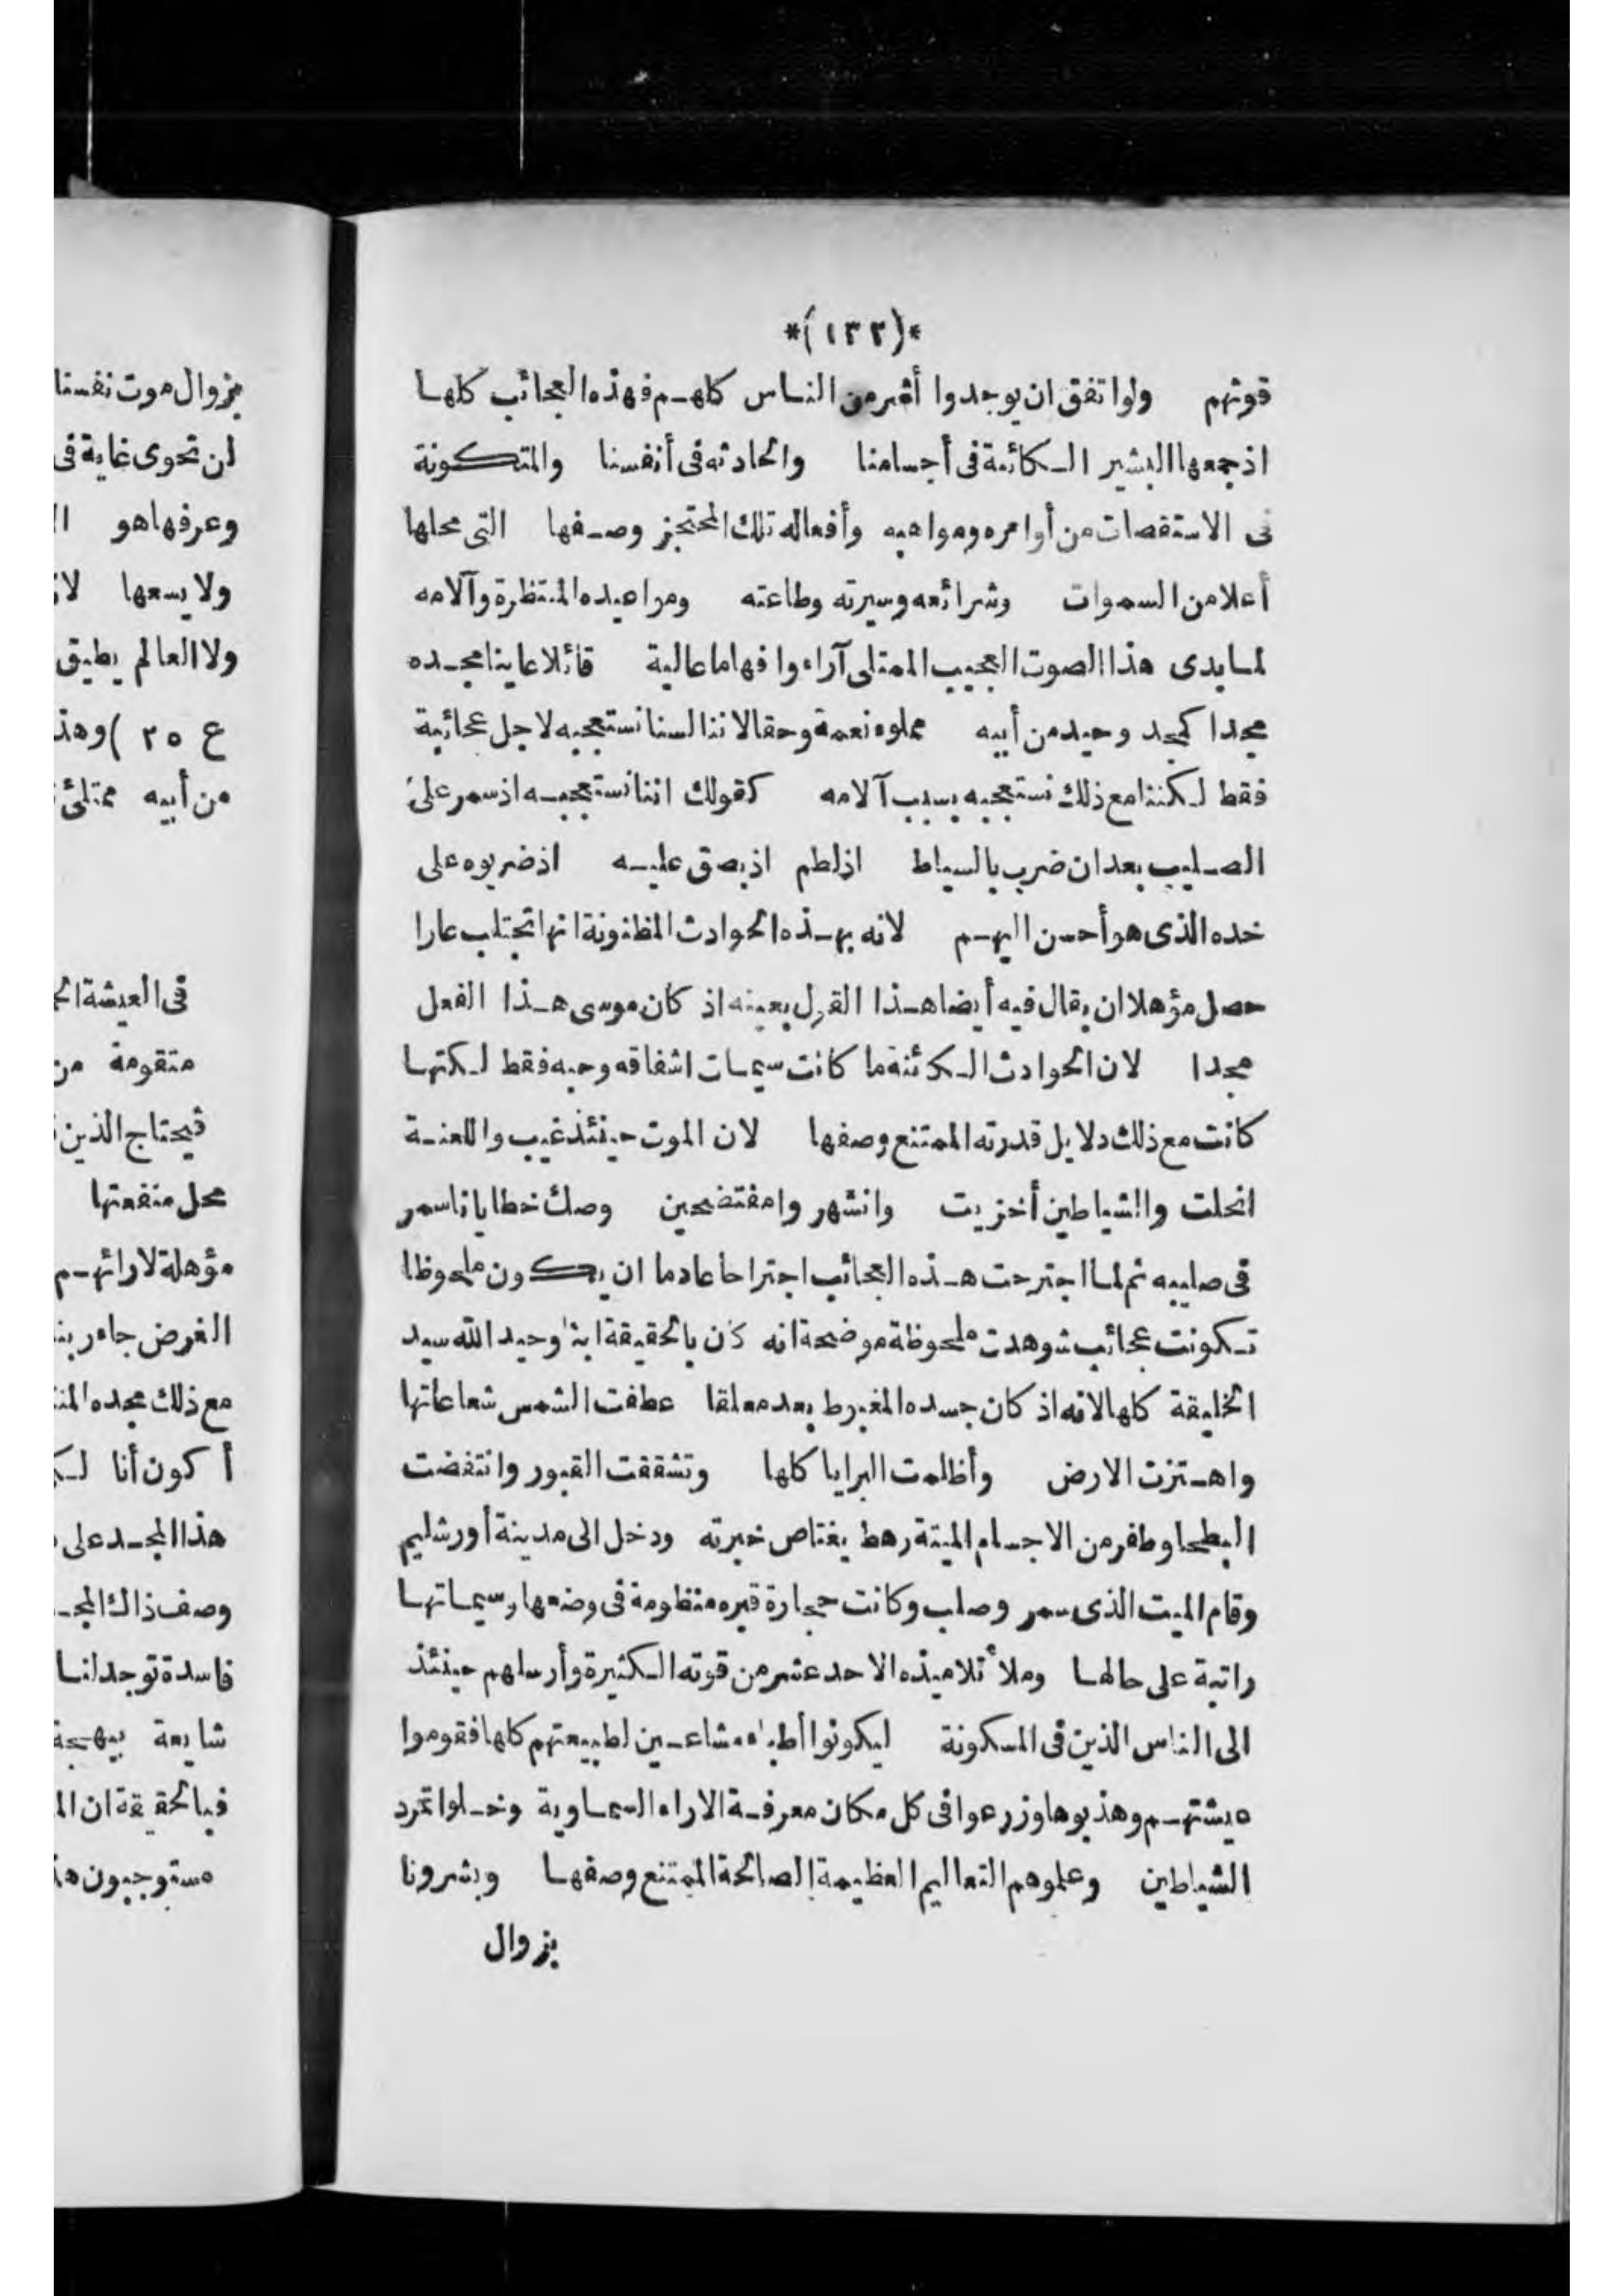 *(١٣٢)*
قوتهم ولو اتفق ان يوجدوا أشر من الناس كلهم فهذه العجائب كلها
اذ جمعها البشير الكائنة فى أجسامنا والحادثه فى أنفسنا والمتكونة
فى الاستقصات من أوامره ومواهبه وأفعاله تلك المحتجز وصفها التى محلها
أعلا من السموات وشرائعه وسيرته وطاعته ومواعيده المنتظرة وآلامه
لسايدى هذا الصوت العجيب الممتلى آراء وافهاما عالية قائلا عاينا مجده
مجدا كمجد وحيد من أبيه مملوه نعمة وحقا لاننا لسنا نستعجبه لاجل عجائبه
فقط لكننا مع ذلك نستعجبه بسبب آلامه كقولك اننا نستعجبه اذ سمر على
الصليب بعد ان ضرب بالسياط اذ لطم اذ بصق عليه اذ ضربوه على
خده الذى هو أحسن اليهم لانه بهذه الحوادث المظنونة انها تجتلب عارا
حصل مؤهلا ان يقال فيه أيضا هذا القول بعينه اذ كان موسى هذا الفعل
مجدا لان الحوادث الكائنة ما كانت سيمات اشفاقه وحبه فقط لكنها
كانت مع ذلك دلايل قدرته الممتنع وصفها لان الموت حينئذ غيب واللعنة
انحلت والشياطين أخزيت وانشهر وا مفتضحين وصك خطايانا سمر
فى صليبه ثم لما اجترحت هذه العجائب اجتراحا عادما ان يكون ملحوظا
تكونت عجائب شوهدت ملحوظة موضحة انه كان بالحقيقة ابنا وحيد الله سيد
الخليقة كلها لانه اذ كان جسده المغبوط بعد معلقا عطفت الشمس شعاعاتها
واهتزت الارض وأظلمت البرايا كلها وتشققت القبور وانتفضت
البطحا وطفر من الاجسام الميتة رهط يغتاص خبرته ودخل الى مدينة أورشليم
وقام الميت الذى سمر وصلب وكانت حجارة قبره منظومة فى وضعها وسيماتها
راتبة على حالها وملأ تلاميذه الاحد عشر من قوته الكثيرة وأرسلهم حينئذ
الى الناس الذين فى المسكونة ليكونوا أطباء مشاعين لطبيعتهم كلها فقوموا
عيشتهم وهذبوها وزرعوا فى كل مكان معرفة الاراء السماوية وخلوا تمرد
الشياطين وعلموهم التعاليم العظيمة الصالحة الممتنع وصفها وبشرونا
بزوال
بزوال موت نفسنا
ان تحوى غاية فى
وعرفها هو
ولا يسعها
ولا العالم يطيق
ع ٢٥ ) وهذ
من أبيه ممتلئ
فى العيشة
متقومة من
فيحتاج الذين
محل منفعتها
مؤهلة لارائهم
الغرض جاور
مع ذلك مجده
أكون أنا
هذا المجد على
وصف ذاك
فاسدة توجد لنا
شايعة
فبالحقيقة ان
مستوجبون